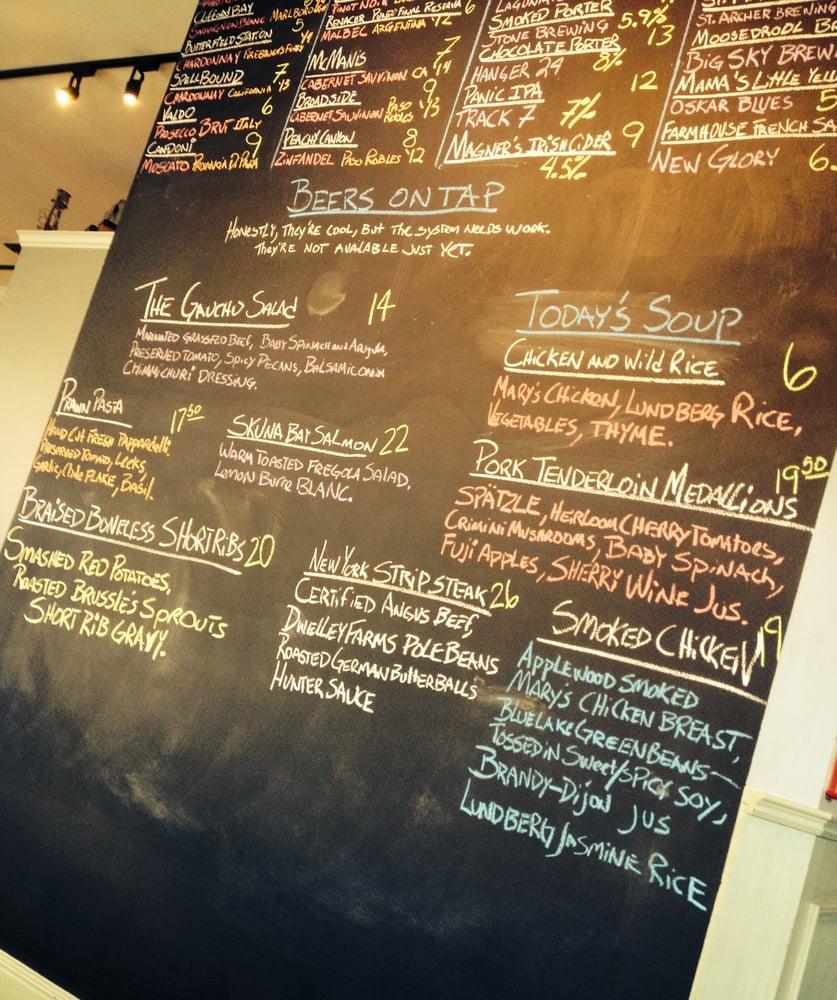 Cloudy Bay
Sauvignon Blanc Marlborough
Butterfield Station 5
Chardonnay Firebaugh's Ferry
Spellbound 7
Chardonnay California '13
Valdo 6
Prosecco Brut Italy
Candoni 9
Moscato Provincia Di Pavia
Pinot Noir
Renacer Punto Final Reserva 6
Malbec Argentina '12
McManis 7
Cabernet Sauvignon CA '14
Broadside 9
Cabernet Sauvignon Paso Robles '13
Peachy Canyon 8
Zinfandel Paso Robles '12
Smoked Porter 5.9%
Stone Brewing 13
Chocolate Porter 8%
Hanger 24 12
Panic IPA
Track 7 7%
Magner's Irish Cider 9
4.5%
St. Archer Brewing
Moose Drool B
Big Sky Brew
Mama's Little Yell
Oskar Blues 5
Farmhouse French Sa
New Glory 6.
Beers on Tap
Honestly, They're cool, But the system needs work.
They're not available just yet.
The Gaucho Salad 14
Marinated Grassfed Beef, Baby Spinach and Arugula,
Preserved Tomato, Spicy Pecans, Balsamic Onion
Chimmichuri Dressing.
Today's Soup
Chicken and Wild Rice 6
Mary's Chicken, Lundberg Rice,
Vegetables, Thyme.
Prawn Pasta 17 50
Hand Cut Fresh Pappardelle,
Preserved Tomato, Leeks,
Garlic, Chile Flake, Basil.
Skuna Bay Salmon 22
Warm Toasted Fregola Salad,
Lemon Burre Blanc.
Pork Tenderloin Medallions 19 50
Spätzle, Heirloom Cherry Tomatoes,
Crimini Mushrooms, Baby Spinach,
Fuji Apples, Sherry Wine Jus.
Braised Boneless Shortribs 20
Smashed Red Potatoes,
Roasted Brussle's Sprouts
Short Rib Gravy.
New York Strip Steak 26
Certified Angus Beef,
Dwelley Farms Pole Beans
Roasted German Butterballs
Hunter Sauce
Smoked Chicken 19
Applewood Smoked
Mary's Chicken Breast,
Bluelake Green Beans—
Tossed in Sweet/Spicy Soy,
Brandy-Dijon Jus
Lundberg Jasmine Rice